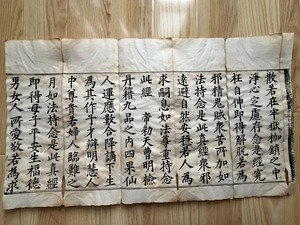 散若在牢獄枷鎖之中
淨心定慮存念是經冤
枉自伸即得解脫若為
邪精鬼賊衆苦所加如
法持念是此真經衆邪
遠避自然安穩若人為
求嗣息如法專重持念
此經 帝勅天曹明檢
丹籍九品之內四果仙
人運應數合降謫下生
為其作子才辯明慧人
中尊貴若婦人臨難之
月如法持念是此真經
即得母子平安生福德
男女人所愛敬若為求